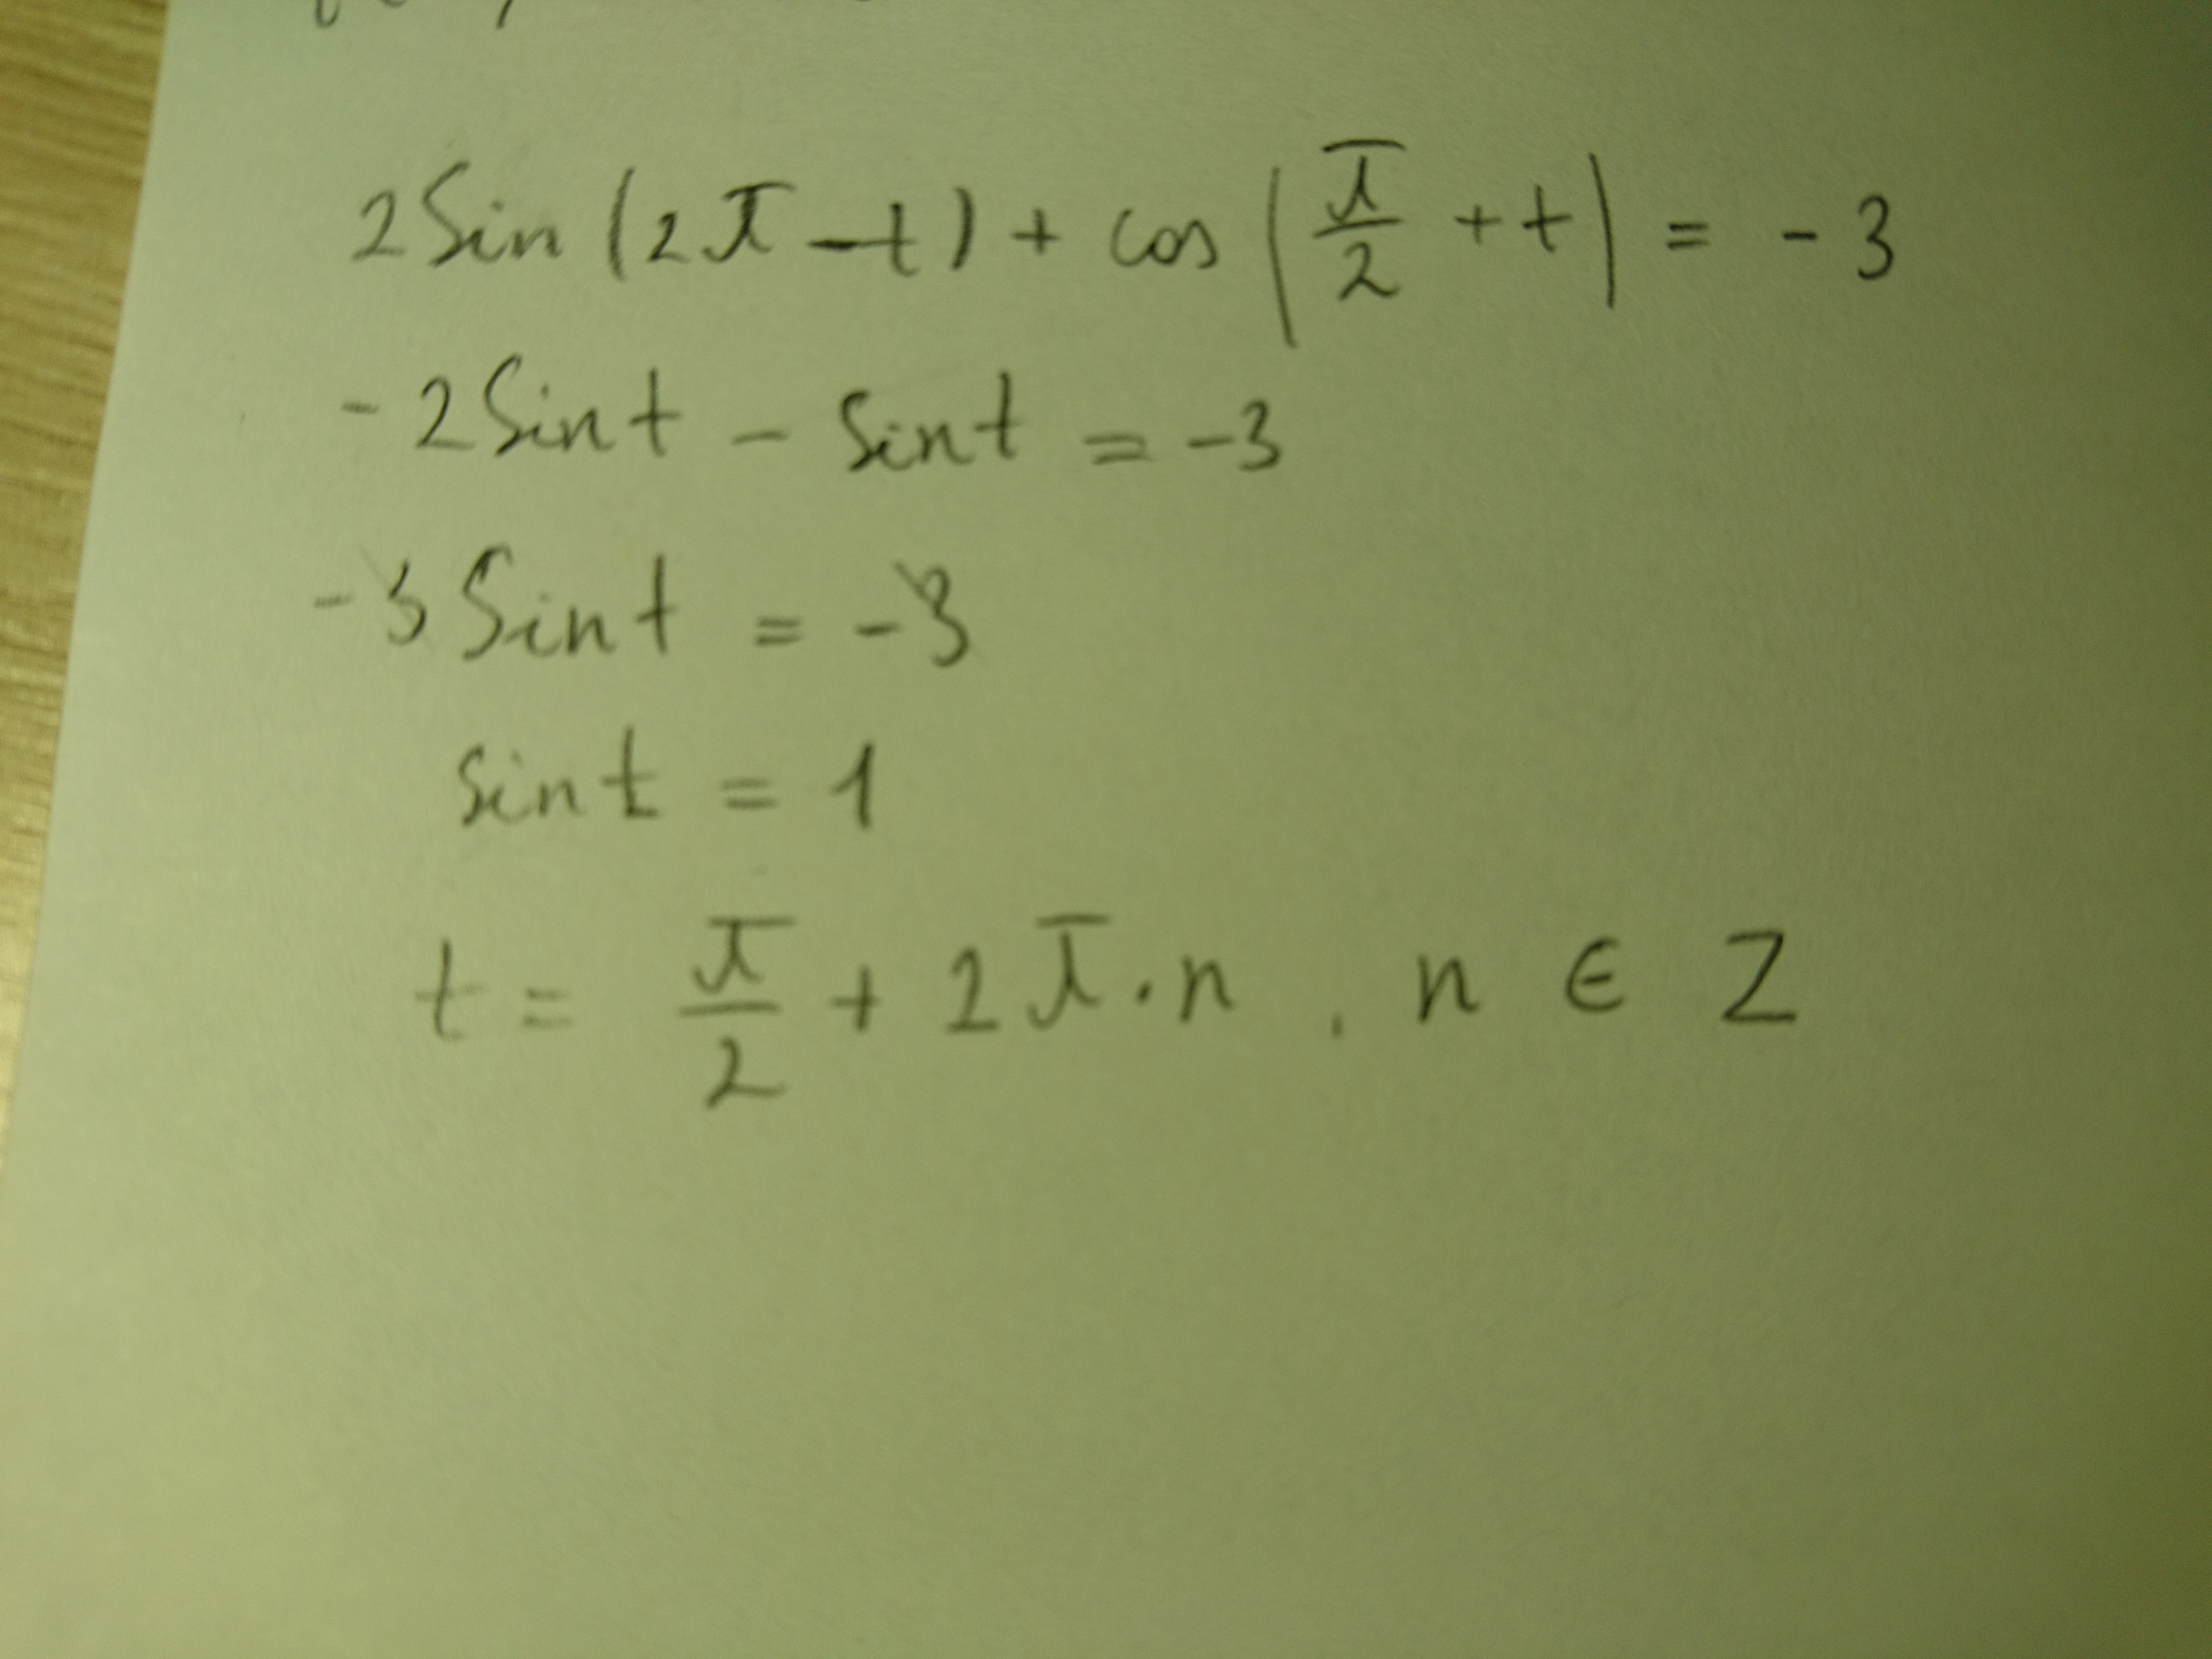 2 Sin (2π - t) + cos (π/2 + t) = - 3
- 2 Sin t - Sin t = -3
-3 Sin t = -3
sin t = 1
t = π/2 + 2π · n , n ∈ Z